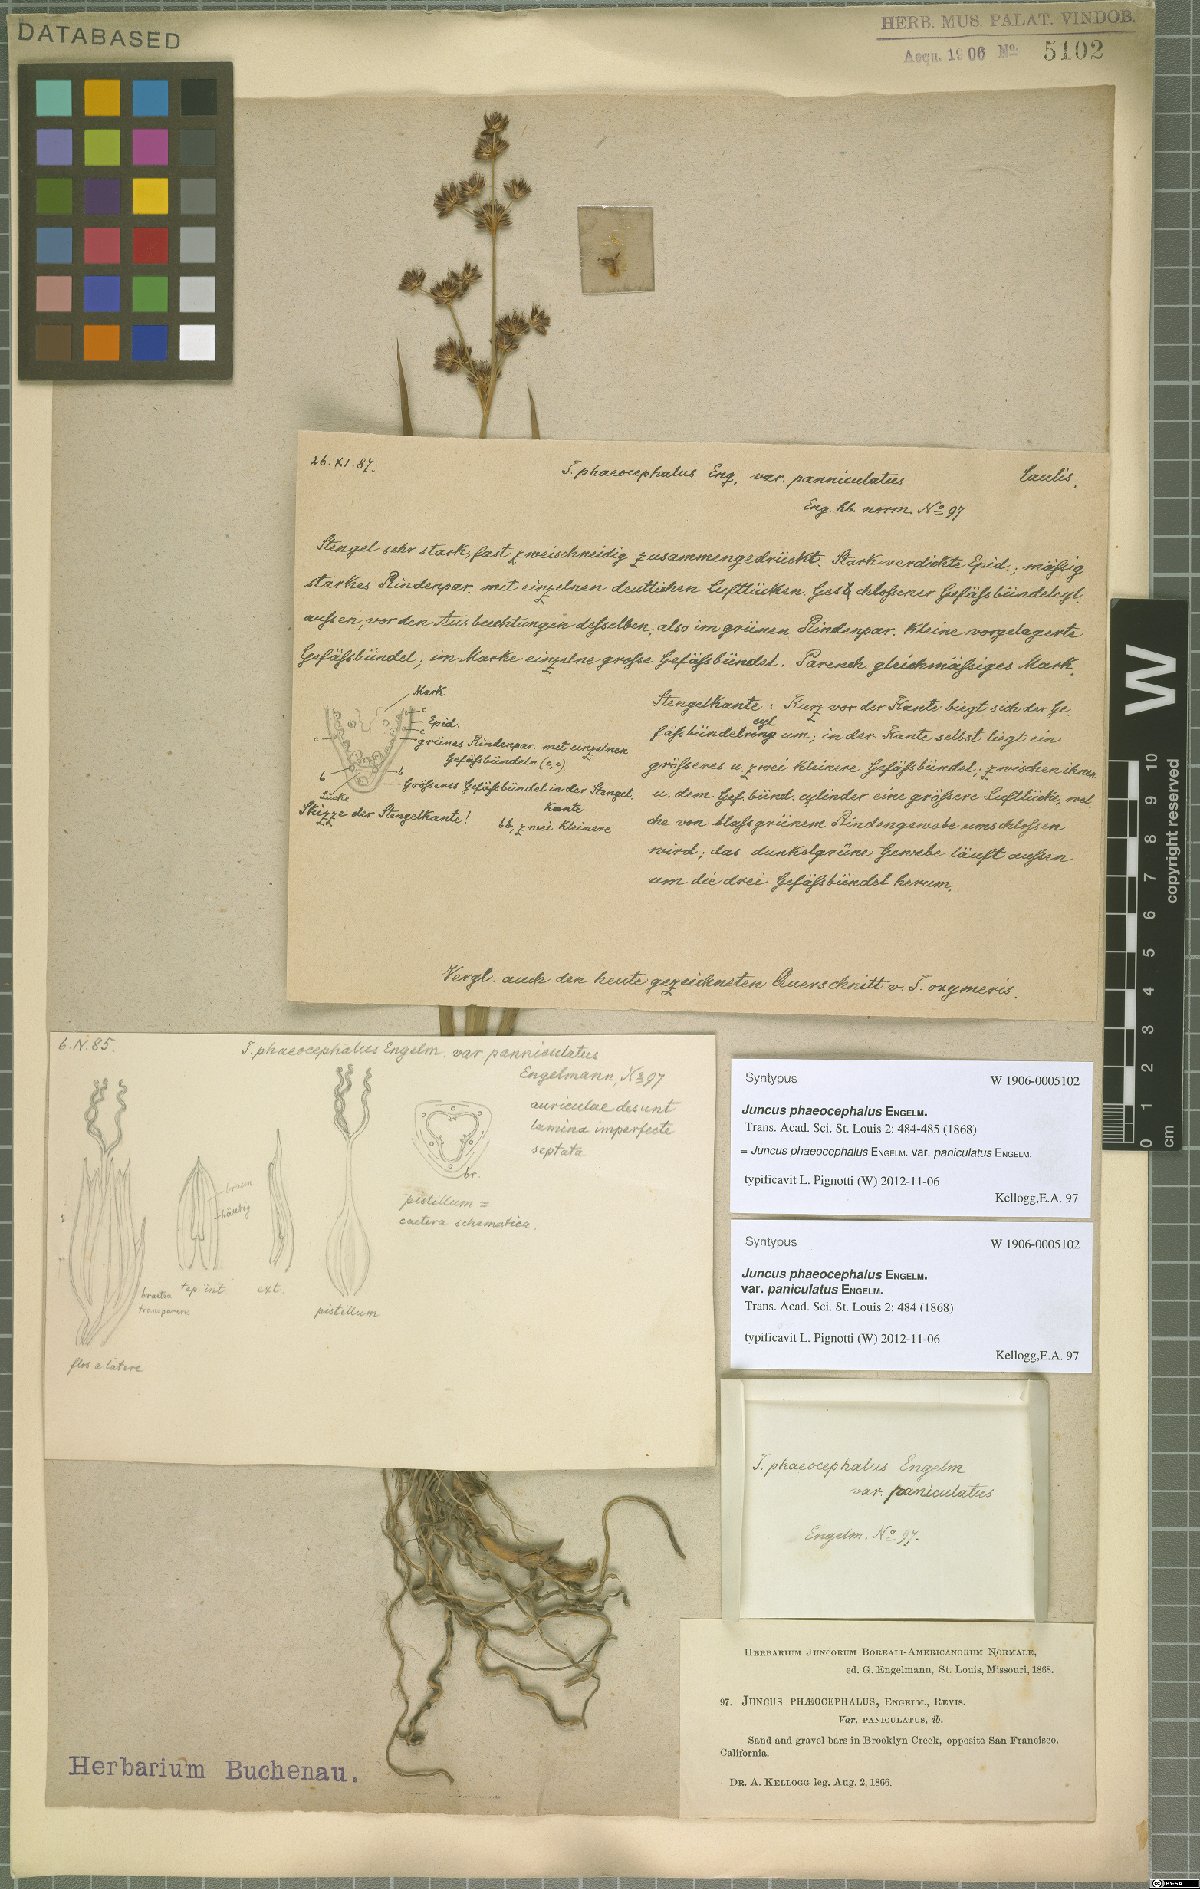 DATABASED
HERB. MUS. PALAT. VINDOB.
Acqu. 1906 No 5102
26.XI.87.
J. phaeocephalus Eng. var. panniculatus
Caulis.
Eng. hb. norm. No 97
Stengel sehr stark, fast zweischneidig zusammengedrückt. Stark verdickte Epid.; mäßig
starkes Rindenpar. mit einzelnen deutlichen Luftlücken. Geschloßener Gefäßbündelcyl.
außen, vor den Ausbuchtungen desselben, also im grünen Rindenpar. kleine vorgelagerte
Gefäßbündel; im Marke einzelne große Gefäßbündel. Parench. gleichmäßiges Mark.
Mark
c
Epid.
c
grünes Rindenpar. mit einzelnen
Gefäßbündeln (c, c)
b
b
Größeres Gefäßbündel in der Stengel-
kante
Lücke
Skizze der Stengelkante!
bb, zwei kleinere
Stengelkante: Kurz vor der Kante biegt sich der Ge-
cyl
fäßbündelring um; in der Kante selbst liegt ein
größeres u. zwei kleinere Gefäßbündel; zwischen ihnen
u. dem Gef.bünd. cylinder eine größere Luftlücke, wel-
che von blaßgrünem Rindengewebe umschloßen
wird; das dunkelgrüne Gewebe läuft außen
um die drei Gefäßbündel herum.
Vergl. auch den heute gezeichneten Querschnitt v. J. oxymeris.
6.IV.85.
J. phaeocephalus Engelm. var panniculatus
Engelmann, No 97
auriculae desunt
lamina imperfecte
septata
br.
pistillum =
caetera schematica.
braun
häutig
bractea
transparens
tep int
ext.
pistillum
flos a latere
Syntypus
W 1906-0005102
Juncus phaeocephalus ENGELM.
Trans. Acad. Sci. St. Louis 2: 484-485 (1868)
= Juncus phaeocephalus ENGELM. var. paniculatus ENGELM.
typificavit L. Pignotti (W) 2012-11-06
Kellogg,E.A. 97
Syntypus
W 1906-0005102
Juncus phaeocephalus ENGELM.
var. paniculatus ENGELM.
Trans. Acad. Sci. St. Louis 2: 484 (1868)
typificavit L. Pignotti (W) 2012-11-06
Kellogg,E.A. 97
J. phaeocephalus Engelm
var. paniculatus
Engelm. No 97.
HERBARIUM JUNCORUM BOREALI-AMERICANORUM NORMALE,
ed. G. Engelmann, St. Louis, Missouri, 1868.
97. JUNCUS PHÆOCEPHALUS, ENGELM., REVIS.
Var. PANICULATUS, ib.
Sand and gravel bars in Brooklyn Creek, opposite San Francisco,
California.
DR. A. KELLOGG leg. Aug. 2, 1866.
Herbarium Buchenau.
W
0 1 2 3 4 5 6 7 8 9 10
cm
copyright reserved